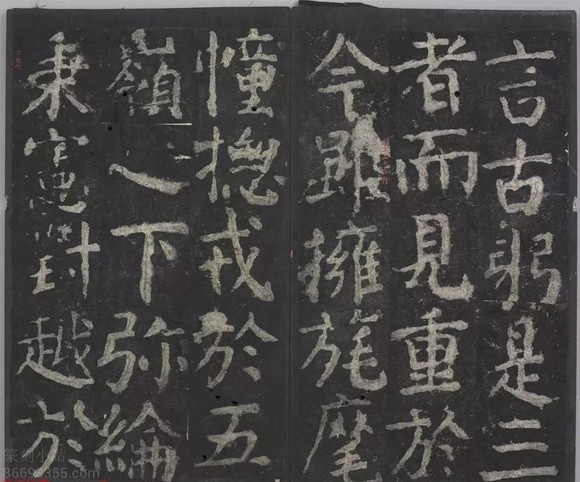 言古躬是三
者而見重於
今雖擁旄麾
幢揔戎於五
嶺之下弥綸
秉憲封越於